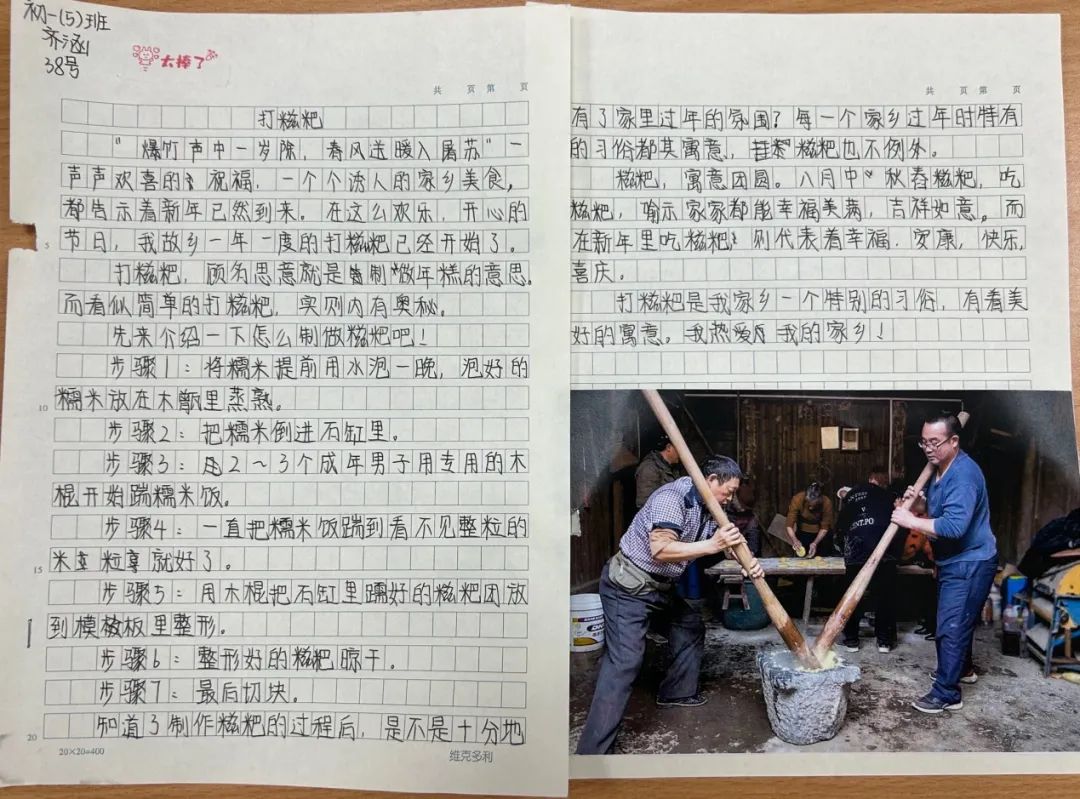 初一(5)班
齐涵
38号
太棒了
共 页 第 页
打糍粑
“爆竹声中一岁除，春风送暖入屠苏”一
声声欢喜的祝福，一个个诱人的家乡美食，
都告示着新年已然到来。在这么欢乐，开心的
节日，我故乡一年一度的打糍粑已经开始了。
打糍粑，顾名思意就是制做年糕的意思。
而看似简单的打糍粑，实则内有奥秘。
先来介绍一下怎么制做糍粑吧！
步骤1：将糯米提前用水泡一晚，泡好的
糯米放在木甑里蒸熟。
步骤2：把糯米倒进石缸里。
步骤3：由2～3个成年男子用专用的木
棍开始踹糯米饭。
步骤4：一直把糯米饭踹到看不见整粒的
米粒就好了。
步骤5：用木棍把石缸里踹好的糍粑团放
到模板里整形。
步骤6：整形好的糍粑晾干。
步骤7：最后切块。
知道了制作糍粑的过程后，是不是十分地
5
10
15
20
20×20=400
维克多利
共 页 第 页
有了家里过年的氛围？每一个家乡过年时特有
的习俗都其寓意，糍粑也不例外。
糍粑，寓意团圆。八月中秋舂糍粑，吃
糍粑，喻示家家都能幸福美满，吉祥如意。而
在新年里吃糍粑则代表着幸福，安康，快乐，
喜庆。
打糍粑是我家乡一个特别的习俗，有着美
好的寓意。我热爱我的家乡！